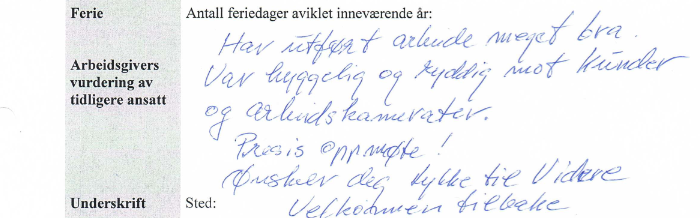 Ferie Antall feriedager aviklet inneværende år:
Har utført arbeide meget bra.
Arbeidsgivers
vurdering av
tidligere ansatt
Var hyggelig og ryddig mot kunder
og arbeidskamerater.
Presis oppmøte!
Ønsker deg lykke til videre
Underskrift Sted:
Velkommen tilbake